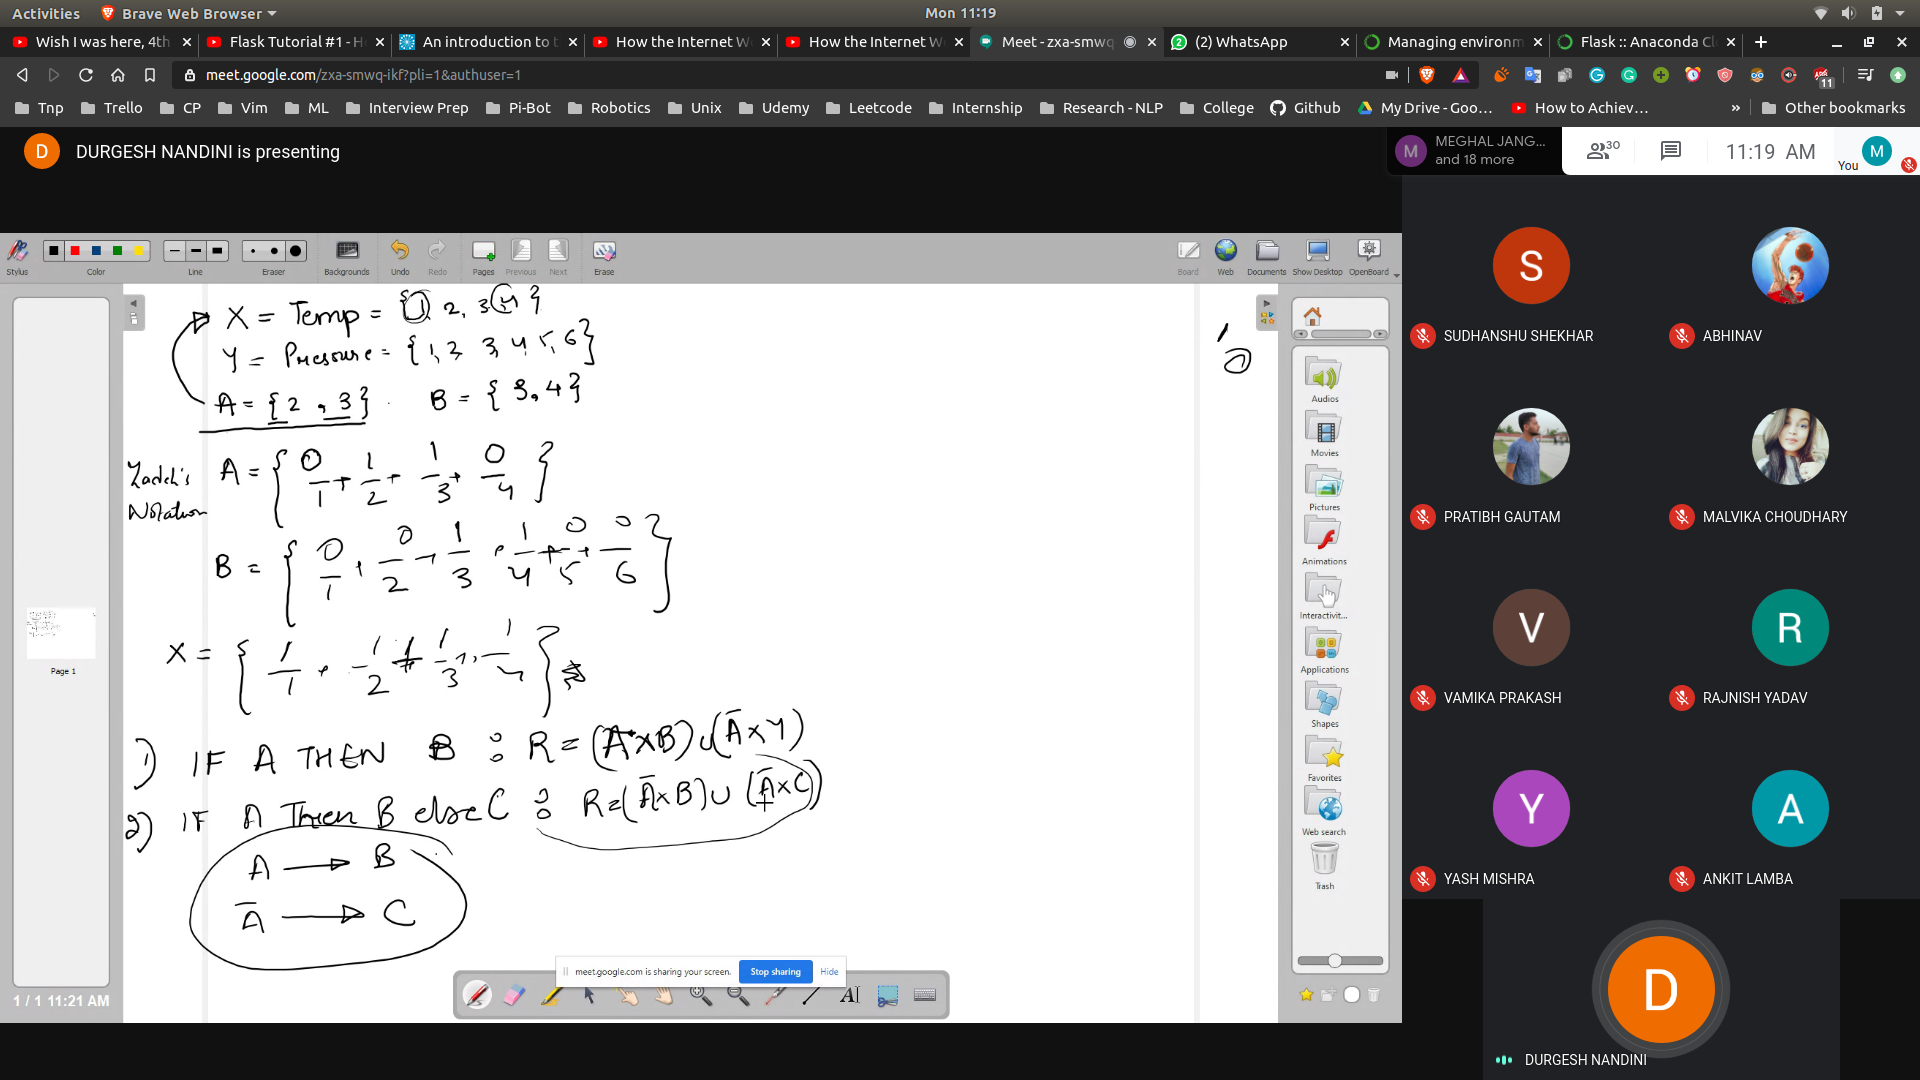 Activities Brave Web Browser Mon 11:19
Wish I was here, 4th Flask Tutorial #1 - H An introduction to How the Internet W How the Internet W Meet - zxa-smwq (2) WhatsApp Managing environm Flask :: Anaconda Cl
meet.google.com/zxa-smwq-ikf?pli=1&authuser=1 11
Tnp Trello CP Vim ML Interview Prep Pi-Bot Robotics Unix Udemy Leetcode Internship Research - NLP College Github My Drive - Goo… How to Achiev… » Other bookmarks
D DURGESH NANDINI is presenting
M MEGHAL JANG...
and 18 more
30 11:19 AM You M
Stylus Color Line Eraser Backgrounds Undo Redo Pages Previous Next Erase Board Web Documents Show Desktop OpenBoard
X = Temp = {1, 2, 3, 4}
Y = Pressure = {1, 2 3, 4, 5, 6}
A = {2, 3} B = {3, 4}
Zadeh's
Notation
A = {0/1 + 1/2 + 1/3 + 0/4}
B = {0/1 + 0/2 + 1/3 + 1/4 + 0/5 + 0/6}
X = {1/1 + 1/2 + 1/3 + 1/4}
1) IF A THEN B : R = (A × B) ∪ (Ā × Y)
2) IF A Then B else C : R = (Ā × B) ∪ (Ā × C)
A → B
Ā → C
Page 1
1 / 1 11:21 AM
meet.google.com is sharing your screen. Stop sharing Hide
Audios
Movies
Pictures
Animations
Interactivit...
Applications
Shapes
Favorites
Web search
Trash
S
SUDHANSHU SHEKHAR
ABHINAV
PRATIBH GAUTAM
MALVIKA CHOUDHARY
V
VAMIKA PRAKASH
R
RAJNISH YADAV
Y
YASH MISHRA
A
ANKIT LAMBA
D
DURGESH NANDINI